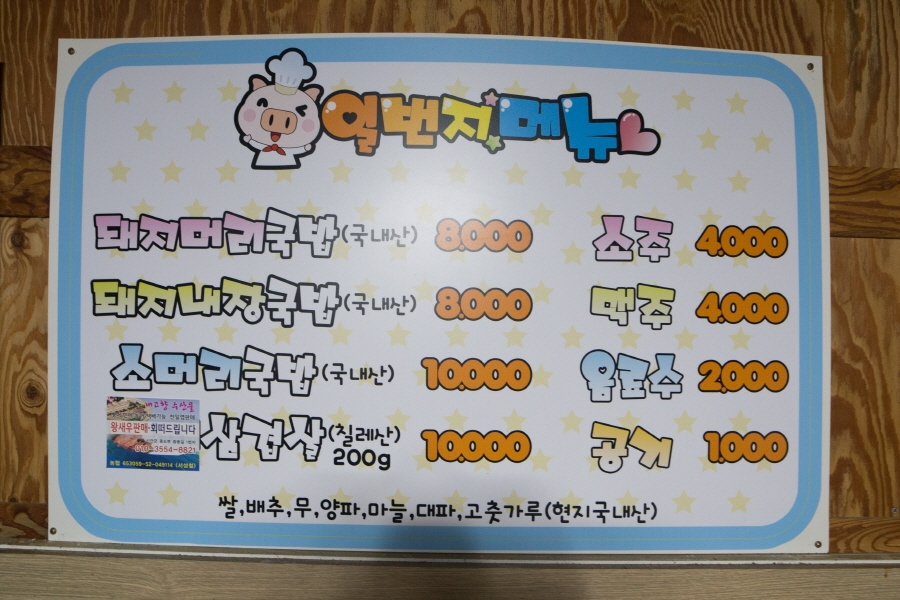 일번지 메뉴
돼지머리국밥(국내산) 8.000
돼지내장국밥(국내산) 8.000
소머리국밥(국내산) 10.000
삼겹살(칠레산) 200g 10.000
소주 4.000
맥주 4.000
음료수 2.000
공기 1.000
왕새우판매·회떠드립니다
010-3554-8821
농협 653059-52-049114
쌀,배추,무,양파,마늘,대파,고춧가루(현지국내산)